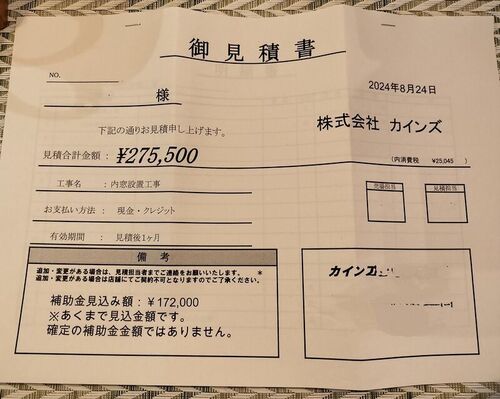 御見積書
NO.
2024年8月24日
様
株式会社 カインズ
下記の通りお見積申し上げます。
見積合計金額 : ¥275,500
(内消費税 ¥25,045)
工事名 : 内窓設置工事
売場担当 見積担当
お支払い方法 : 現金・クレジット
有効期間 : 見積後1ヶ月
備考
追加・変更がある場合は、見積担当者までご連絡をお願いいたします。 *
追加・変更がある場合は店舗にてご契約不可となりますのでご了承ください。
カインズ
補助金見込み額:¥172,000
※あくまで見込金額です。
確定の補助金金額ではありません。